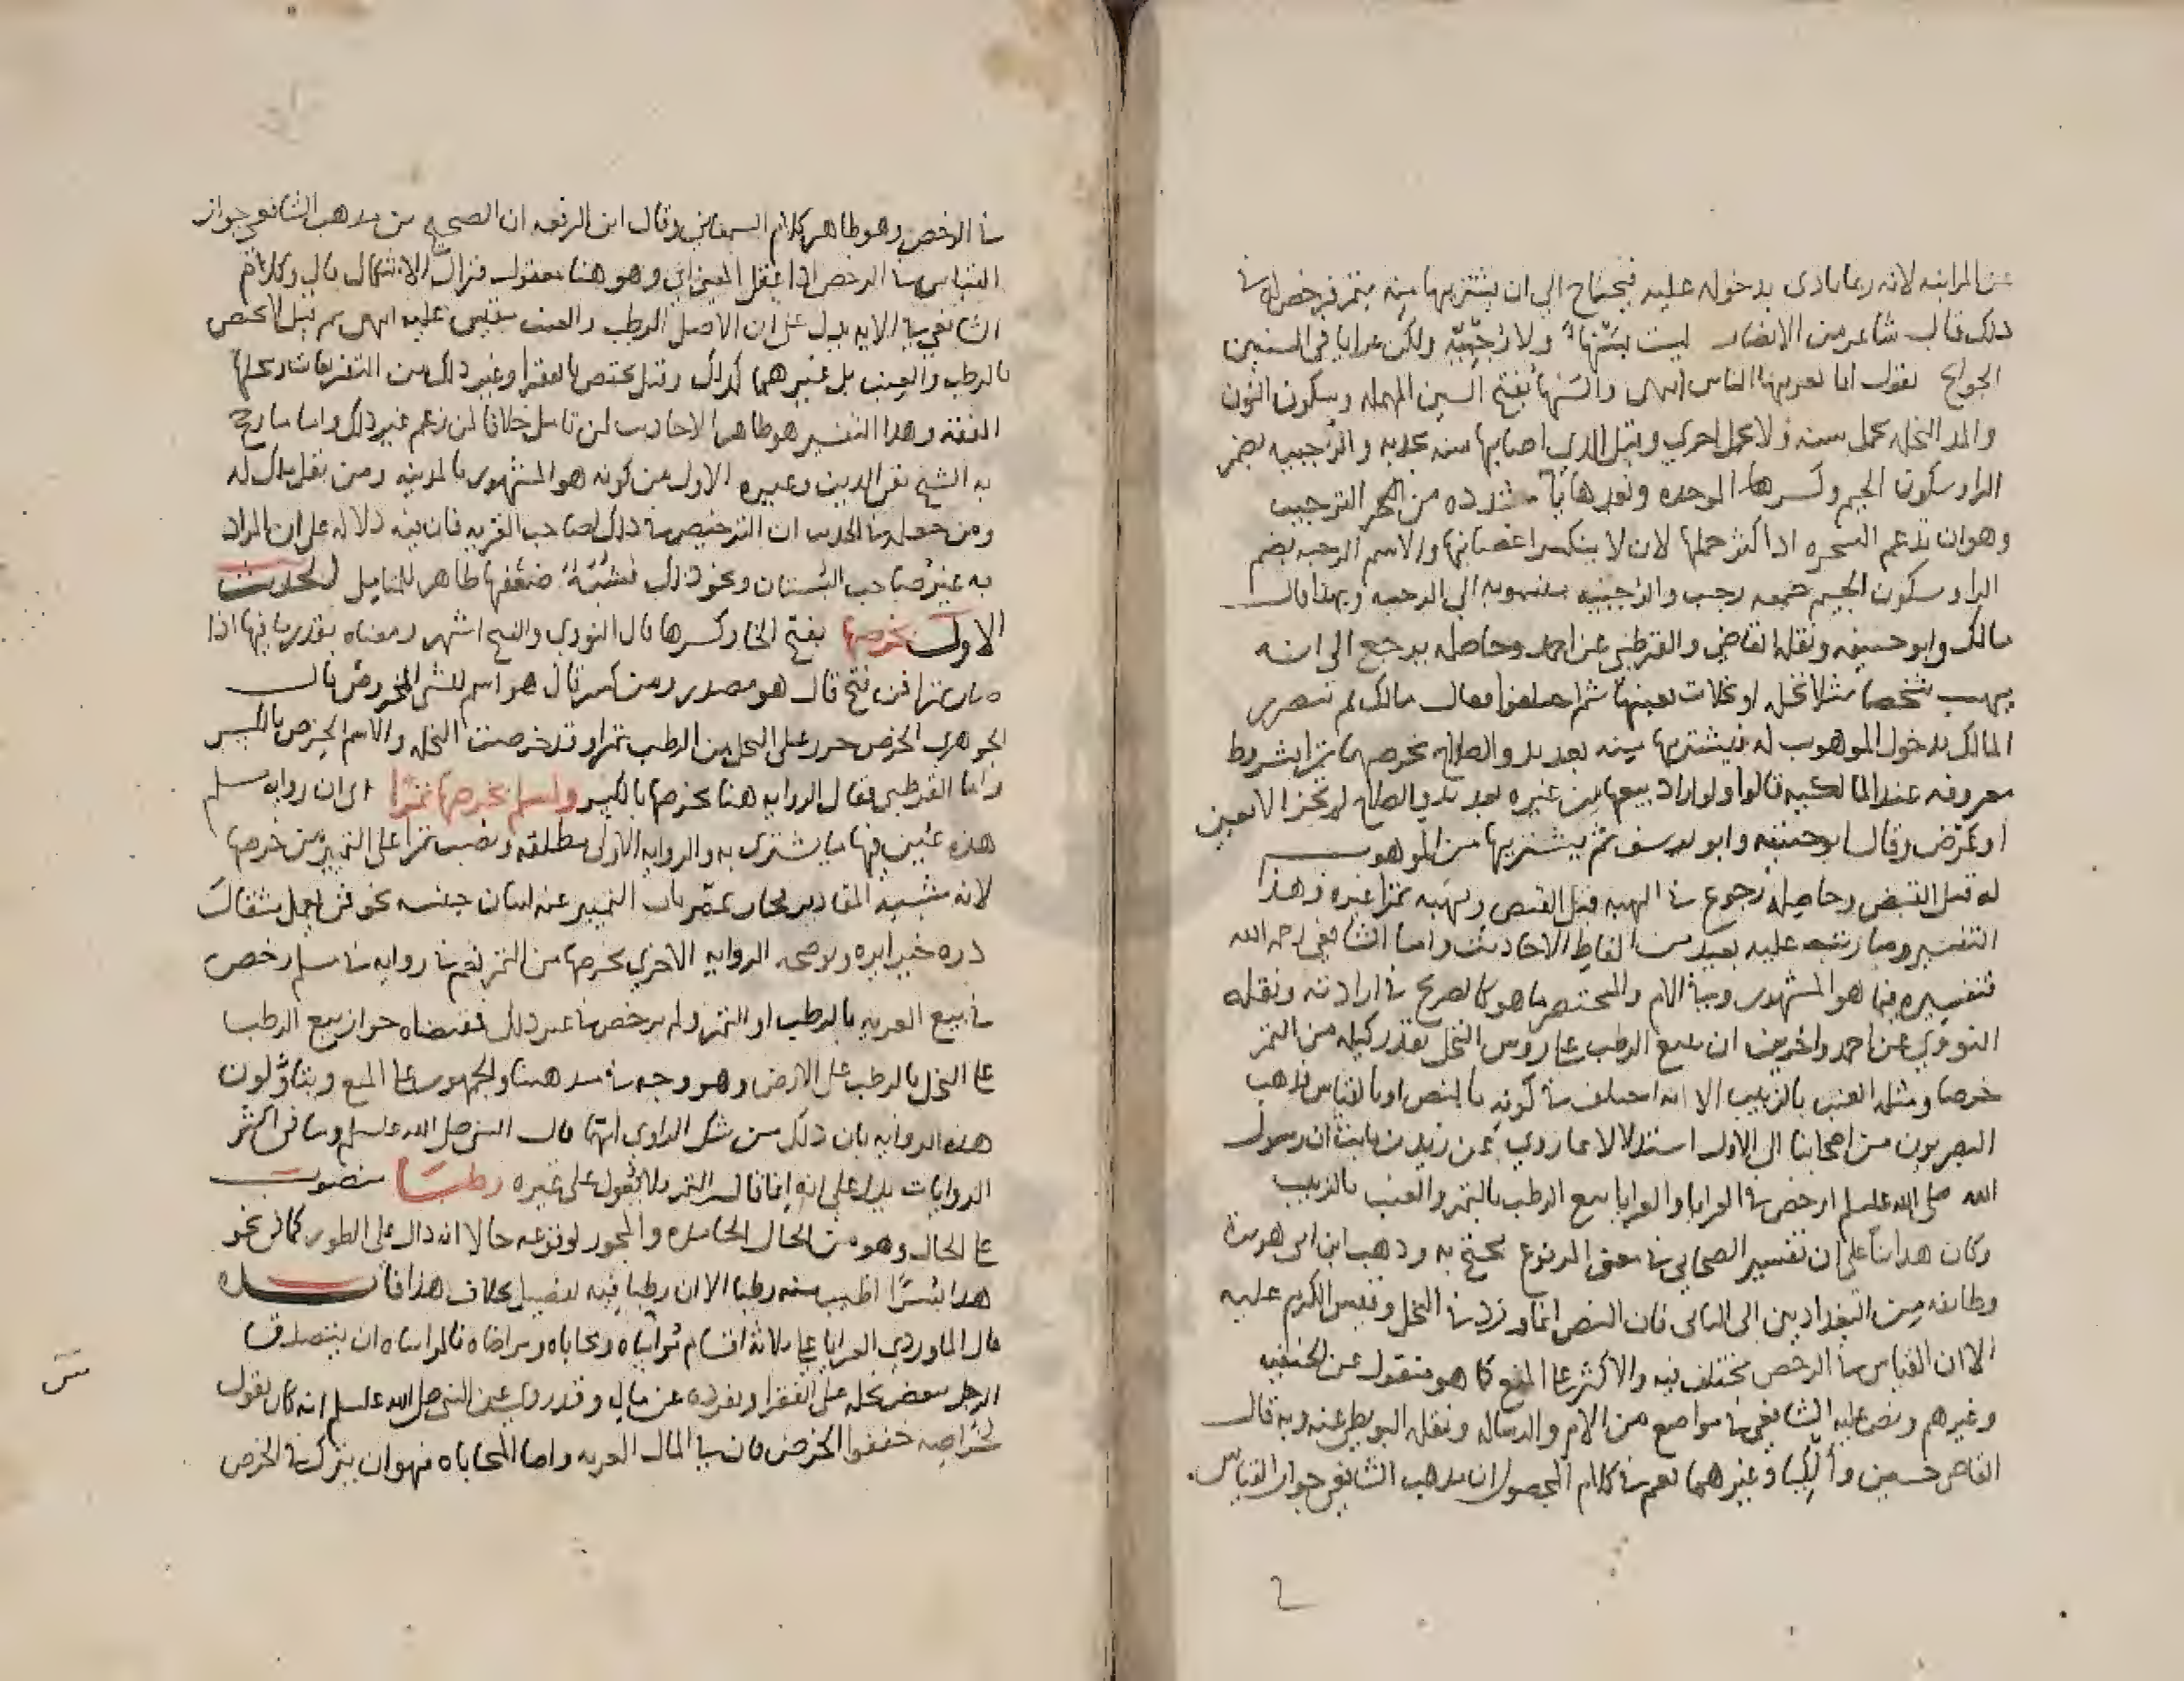 عن المزابنه لانه ربما تاذى بدخوله عليه فيحتاج الي ان يشتريها منه بتمر فرخص له في
ذلك قال شاعر من الانصار ليست بسنهاء ولا رجبية ولكن عرايا في السنين
الجوائح يقول انا نعريها الناس انتهى والسنهاء بفتح السين المهمله وسكون النون
والمد النخله تحمل سنه ولا تحمل اخرى وقيل التي اصابتها سنه مجدبه والرجبيه بضم
الراء وسكون الجيم وكسرها الموحده وبعدها ياء مشدده من الترجيب
وهو ان تدعم الشجره اذا كثر حملها لان لا ينكسر اغصانها والاسم الرجبه بضم
الراء وسكون الجيم جمعه رجب والرجبيه منسوبه الى الرجبه وبهذا قال
مالك وابو حنيفه ونقله القاضي والقرطبي عن احمد وحاصله يرجع الى انه
يهب شخصا مثلا نخله او نخلات بعينها ثم اختلفوا فقال مالك ثم يتضرر
المالك بدخول الموهوب له فيشتريها منه بعد بدو الصلاح بخرصها تمرا بشروط
معروفه عند المالكيه قالوا ولو اراد بيعها من غيره بعد بدو الصلاح لم تجز الا بعين
او بعرض وقال ابو حنيفه وابو يوسف ثم يشتريها من الموهوب
له قبل القبض وحاصله رجوع في الهبه قبل القبض ويهبه تمرا غيره وهذا
التفسير وما رتبه عليه بعيد من الفاظ الاحاديث واما الشافعي رحمه الله
فتفسيره فيما هو المشهور وفي الام والمختصر ما هو كالصريح في ارادته ونقله
النووي عن احمد واخرين ان بيع الرطب على روس النخل بقدر كيله من التمر
خرصا ومثله العنب بالزبيب الا انه اختلف في كونه بالنص او بالقياس فذهب
البصريون من اصحابنا الى الاول استدلالا بما روي عن زيد بن ثابت ان رسول
الله صلى الله عليه وسلم ارخص في العرايا والعرايا بيع الرطب بالتمر والعنب بالزبيب
وكان هذا بناء على ان تفسير الصحابي في معنى المرفوع يحتج به وذهب ابن ابي هريرة
وطائفه من البغداديين الى الثاني فان النص انما ورد في النخل وقيس الكرم عليه
الا ان القياس في الرخص مختلف فيه والاكثر على المنع كما هو منقول عن الحنفيه
وغيرهم ونص عليه الشافعي في مواضع من الام والرساله ونقله البويطي عنه وبه قال
القاضي حسين والكيا وغيرهما نعم في كلام المحصول ان مذهب الشافعي جواز القياس
في الرخص وهو ظاهر كلام السمعاني وقال ابن الرفعه ان الصحيح من مذهب الشافعي جواز
القياس في الرخص اذا عقل المعنى اي وهو هنا معقول فزال الاشكال قال وكلام
الشافعي في الام يدل على ان الاصل الرطب والعنب مقيس عليه انتهى ثم قيل لا يختص
بالرطب والعنب بل غيرهما كذلك وقيل يختص بالفقرا وغير ذلك من التفريعات ومحلها
الفقه وهذا التفسير هو ظاهر الاحاديث لمن تامل خلافا لمن زعم غير ذلك واما ما رجح
به الشيخ تقي الدين وغيره الاول من كونه هو المشهور بالمدينه ومن نقل مالك له
ومن جعله في الحديث ان الترخيص في ذلك لصاحب العريه فان فيه دلاله على ان المراد
به غير صاحب البستان ونحو ذلك فشبه ضعفها ظاهر للمتامل الحديث
الاول بخرصها بفتح الخاء وكسرها قال النووي والفتح اشهر ومعناه بقدر ما فيها اذا
صار تمرا فمن فتح قال هو مصدر ومن كسر قال هو اسم للشي المخروص قال
الجوهري الخرص حزر ما على النخل من الرطب تمرا وقد خرصت النخله والاسم الخرص بالكسر
واما القرطبي فقال الروايه هنا بخرصها بالكسر ولمسلم بخرصها تمرا اي ان روايه مسلم
هذه عين فيها ما يشترى به والروايه الاولى مطلقه ونصب تمرا على التمييز من خرصها
لانه شبيه المقادير نحو باب التمييز عنه لبيان جنسه نحو فمن يعمل مثقال
ذره خيرا يره ويوضحه الروايه الاخرى بخرصها من التمر نعم في روايه في مسلم رخص
في بيع العريه بالرطب او التمر ولم يرخص في غير ذلك فمقتضاه جواز بيع الرطب
على النخل بالرطب على الارض وهو وجه في مذهبنا والجمهور على المنع ويتاولون
هذه الروايه بان ذلك من شك الراوي ايهما قال النبي صلى الله عليه وسلم وما في اكثر
الروايات يدل على انه انما قال التمر فلا يعول على غيره رطبا منصوب
على الحال وهو من الحال الجامده والمجوز لوقوعه حالا انه دال على الطور كما في نحو
هذا بسرا اطيب منه رطبا الا ان رطبا فيه تفضيل بخلاف هذا فائده
قال الماوردي العرايا على ثلاثه اقسام مواساه ومحاباه ومراضاه فالمواساه ان يتصدق
الرجل ببعض نخله على الفقرا ويفرده عن ماله وقد روي عن النبي صلى الله عليه وسلم انه كان يقول
لخراصيه خففوا الخرص فان في المال العريه واما المحاباه فهو ان يترك في الخرص